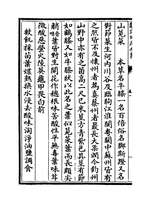 山莧菜　本草名牛膝一名百倍俗名脚斯蹬又名
對節菜生河內川谷及臨朐江淮閩粵關中蘇州皆有
之然皆不及懷州者為真蔡州者最長大柔潤今鈞州
山野中亦有之苗高二尺已來莖方青紫色其莖有節
如鶴膝又如牛膝以此名之葉似莧菜葉而長頗尖
艄葉皆對生開花作穗根味苦酸性平無毒葉味甘
微酸惡螢火陸英龜甲畏白前
救飢採苗葉煠熟換水浸去酸味淘淨油鹽調食